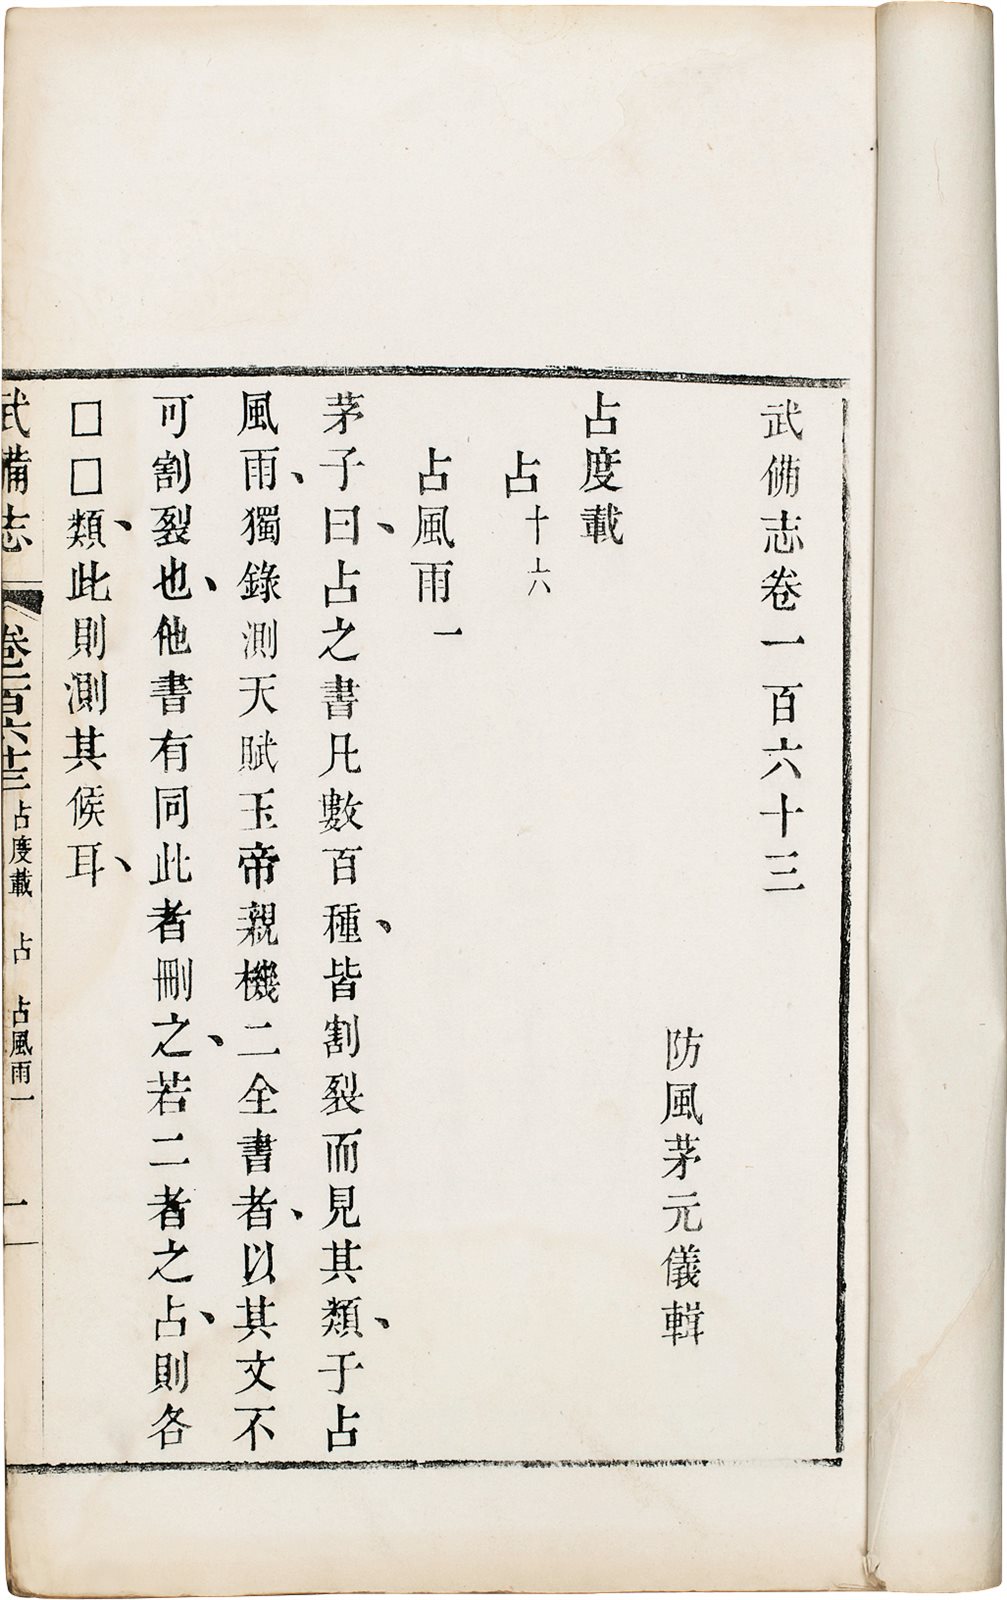 武備志卷一百六十三
防風茅元儀輯
占度載
占十六
占風雨一
茅子曰、占之書凡數百種、皆割裂而見其類、于占
風雨、獨錄測天賦玉帝親機二全書者、以其文不
可割裂也、他書有同此者刪之、若二者之占、則各
□□類、此則測其候耳、
武備志 卷一百六十三 占度載 占 占風雨一 一